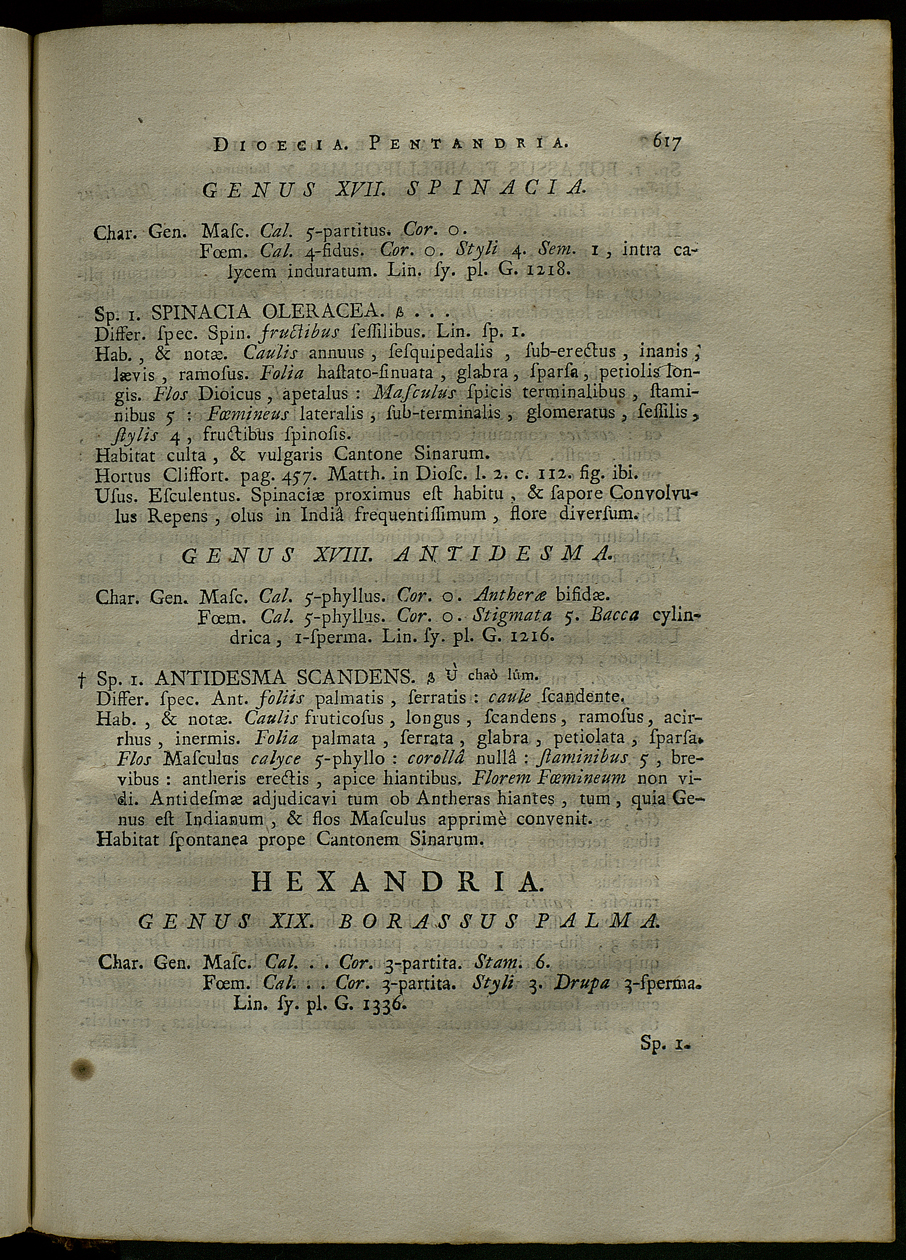 DIOECIA. PENTANDRIA. 617
GENUS XVII. SPINACIA.
Char. Gen. Maſc. Cal. 5-partitus. Cor. 0.
Fœm. Cal. 4-fidus. Cor. 0. Styli 4. Sem. 1, intra ca-
lycem induratum. Lin. ſy. pl. G. 1218.
Sp. 1. SPINACIA OLERACEA. β . . .
Differ. ſpec. Spin. fructibus ſeſſilibus. Lin. ſp. 1.
Hab., & notæ. Caulis annuus, ſeſquipedalis, ſub-erectus, inanis,
lævis, ramoſus. Folia haſtato-ſinuata, glabra, ſparſa, petiolis lon-
gis. Flos Dioicus, apetalus: Maſculus ſpicis terminalibus, ſtami-
nibus 5: Fœmineus lateralis, ſub-terminalis, glomeratus, ſeſſilis,
ſtylis 4, fructibus ſpinoſis.
Habitat culta, & vulgaris Cantone Sinarum.
Hortus Cliffort. pag. 457. Matth. in Dioſc. l. 2. c. 112. fig. ibi.
Uſus. Eſculentus. Spinaciæ proximus eſt habitu, & ſapore Convolvu-
lus Repens, olus in Indiâ frequentiſſimum, flore diverſum.
GENUS XVIII. ANTIDESMA.
Char. Gen. Maſc. Cal. 5-phyllus. Cor. 0. Antheræ bifidæ.
Fœm. Cal. 5-phyllus. Cor. 0. Stigmata 5. Bacca cylin-
drica, 1-ſperma. Lin. ſy. pl. G. 1216.
† Sp. 1. ANTIDESMA SCANDENS. β Ù chaò lúm.
Differ. ſpec. Ant. foliis palmatis, ſerratis: caule ſcandente.
Hab., & notæ. Caulis fruticoſus, longus, ſcandens, ramoſus, acir-
rhus, inermis. Folia palmata, ſerrata, glabra, petiolata, ſparſa.
Flos Maſculus calyce 5-phyllo: corollâ nullâ: ſtaminibus 5, bre-
vibus: antheris erectis, apice hiantibus. Florem Fœmineum non vi-
di. Antideſmæ adjudicavi tum ob Antheras hiantes, tum, quia Ge-
nus eſt Indianum, & flos Maſculus apprimè convenit.
Habitat ſpontanea prope Cantonem Sinarum.
HEXANDRIA.
GENUS XIX. BORASSUS PALMA.
Char. Gen. Maſc. Cal. . . Cor. 3-partita. Stam. 6.
Fœm. Cal. . . Cor. 3-partita. Styli 3. Drupa 3-ſperma.
Lin. ſy. pl. G. 1336.
Sp. 1.